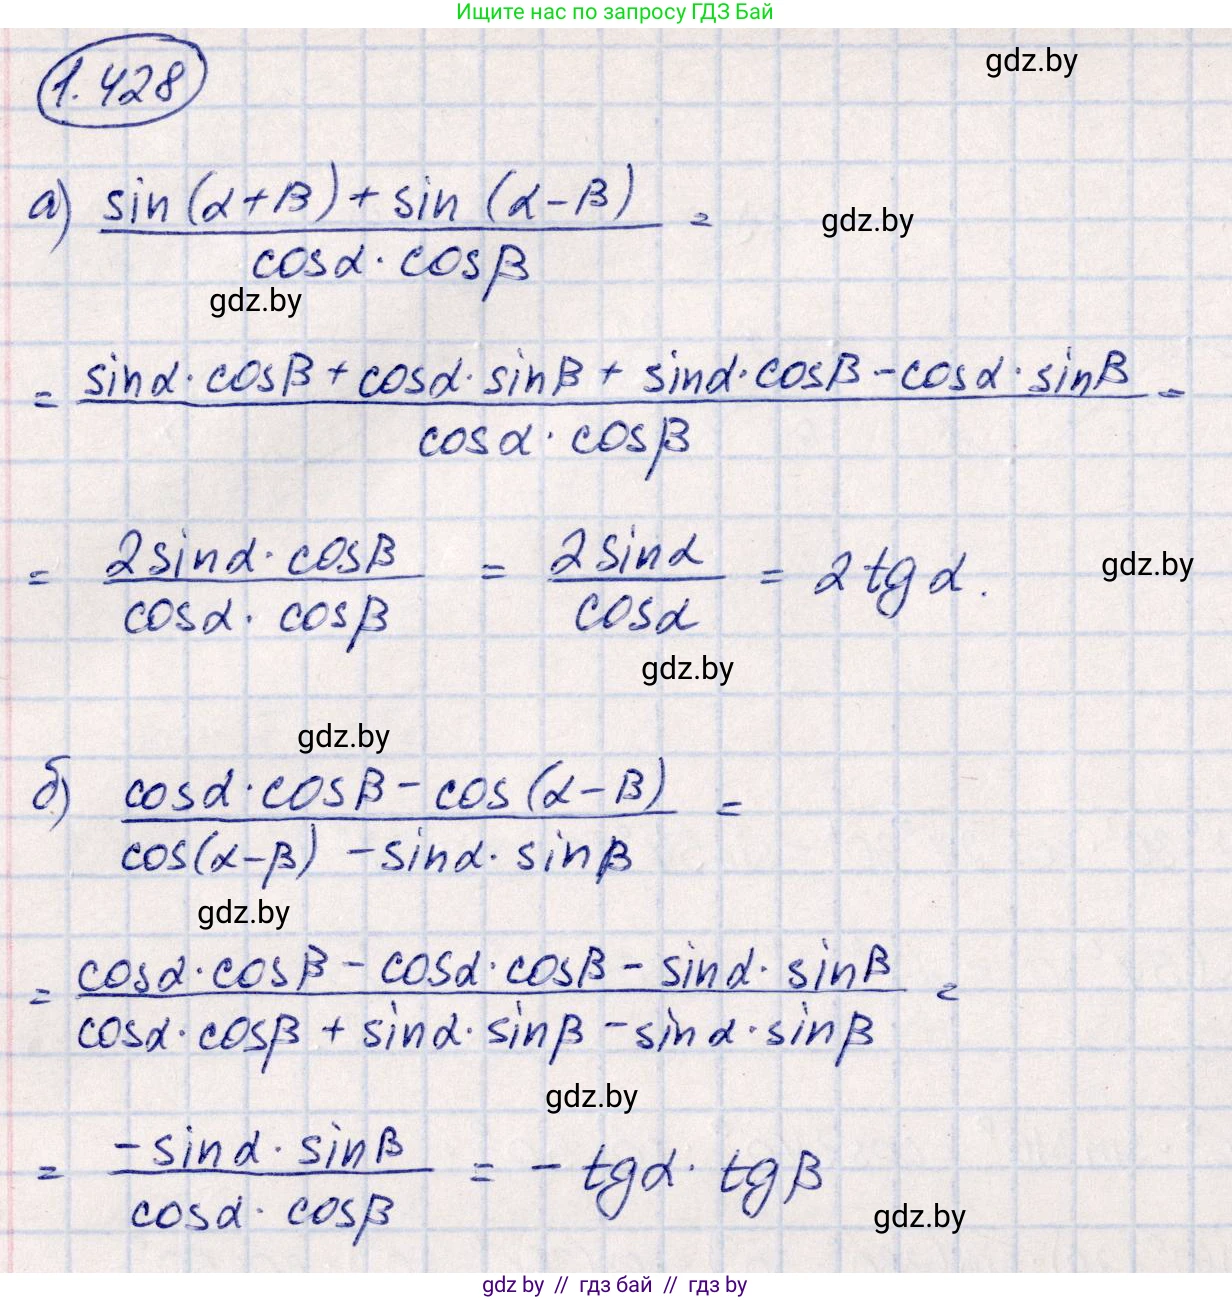 Ищите нас по запросу ГДЗ Бай
1.428
gdz.by
а) (sin(α+β)+sin(α-β))/(cosα·cosβ) =
gdz.by
gdz.by
= (sinα·cosβ+cosα·sinβ+sinα·cosβ-cosα·sinβ)/(cosα·cosβ) =
= (2sinα·cosβ)/(cosα·cosβ) = (2sinα)/(cosα) = 2tgα.
gdz.by
gdz.by
gdz.by
б) (cosα·cosβ-cos(α-β))/(cos(α-β)-sinα·sinβ) =
gdz.by
= (cosα·cosβ-cosα·cosβ-sinα·sinβ)/(cosα·cosβ+sinα·sinβ-sinα·sinβ) =
gdz.by
= (-sinα·sinβ)/(cosα·cosβ) = -tgα·tgβ
gdz.by
gdz by // гдз бай // gdz by